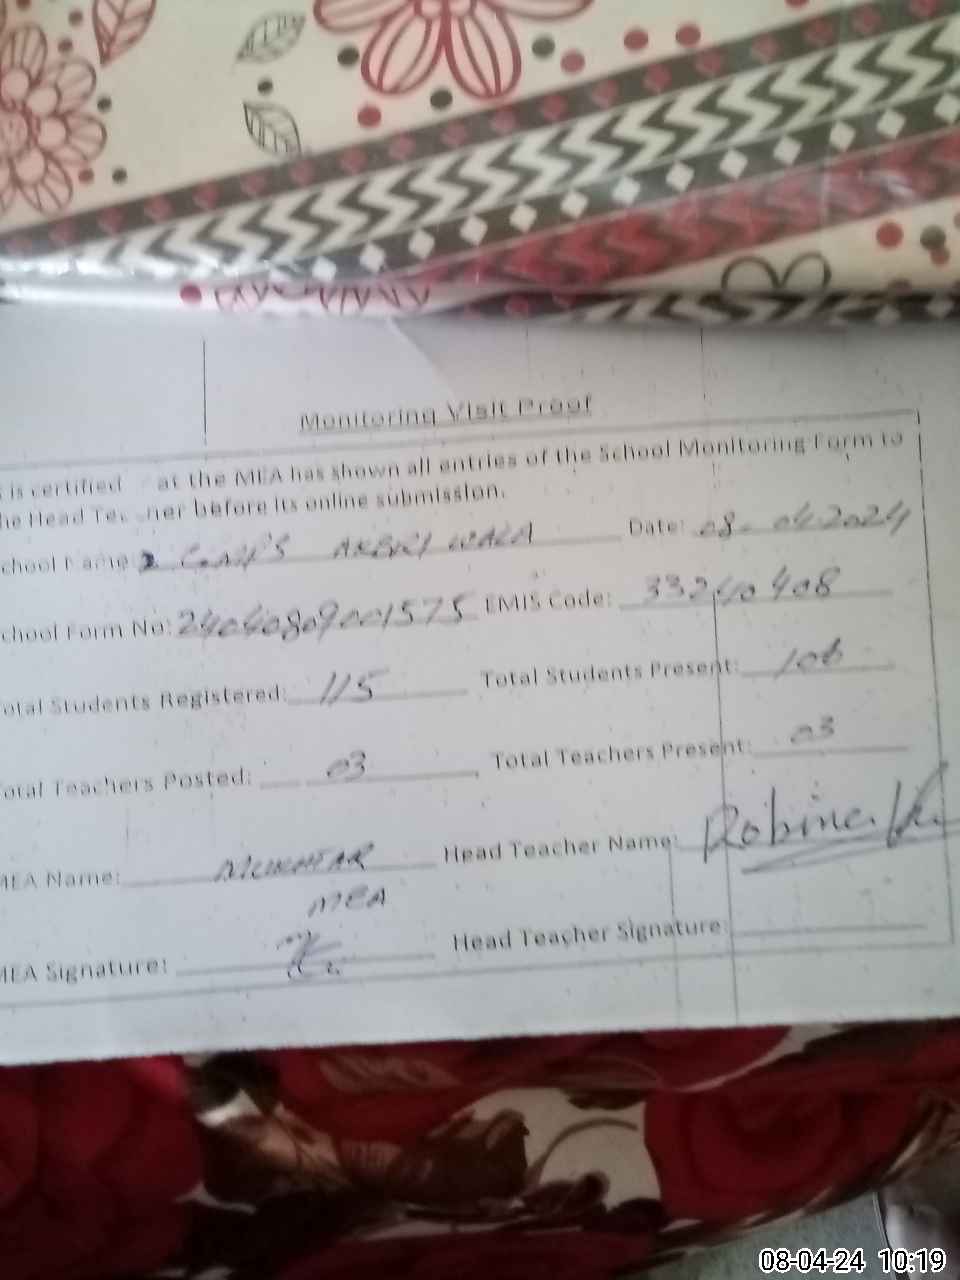 Monitoring Visit Proof
is certified at the MEA has shown all entries of the School Monitoring Form to
he Head Teacher before its online submission.
chool Name WALA Date: 08-04-2024
chool Form No: 24040809001575 EMIS Code: 33240408
otal Students Registered: 115 Total Students Present: 106
otal Teachers Posted: 03 Total Teachers Present: 03
MEA Name: MUKHTAR Head Teacher Name: Robina
MEA
MEA Signature: Head Teacher Signature:
08-04-24 10:19